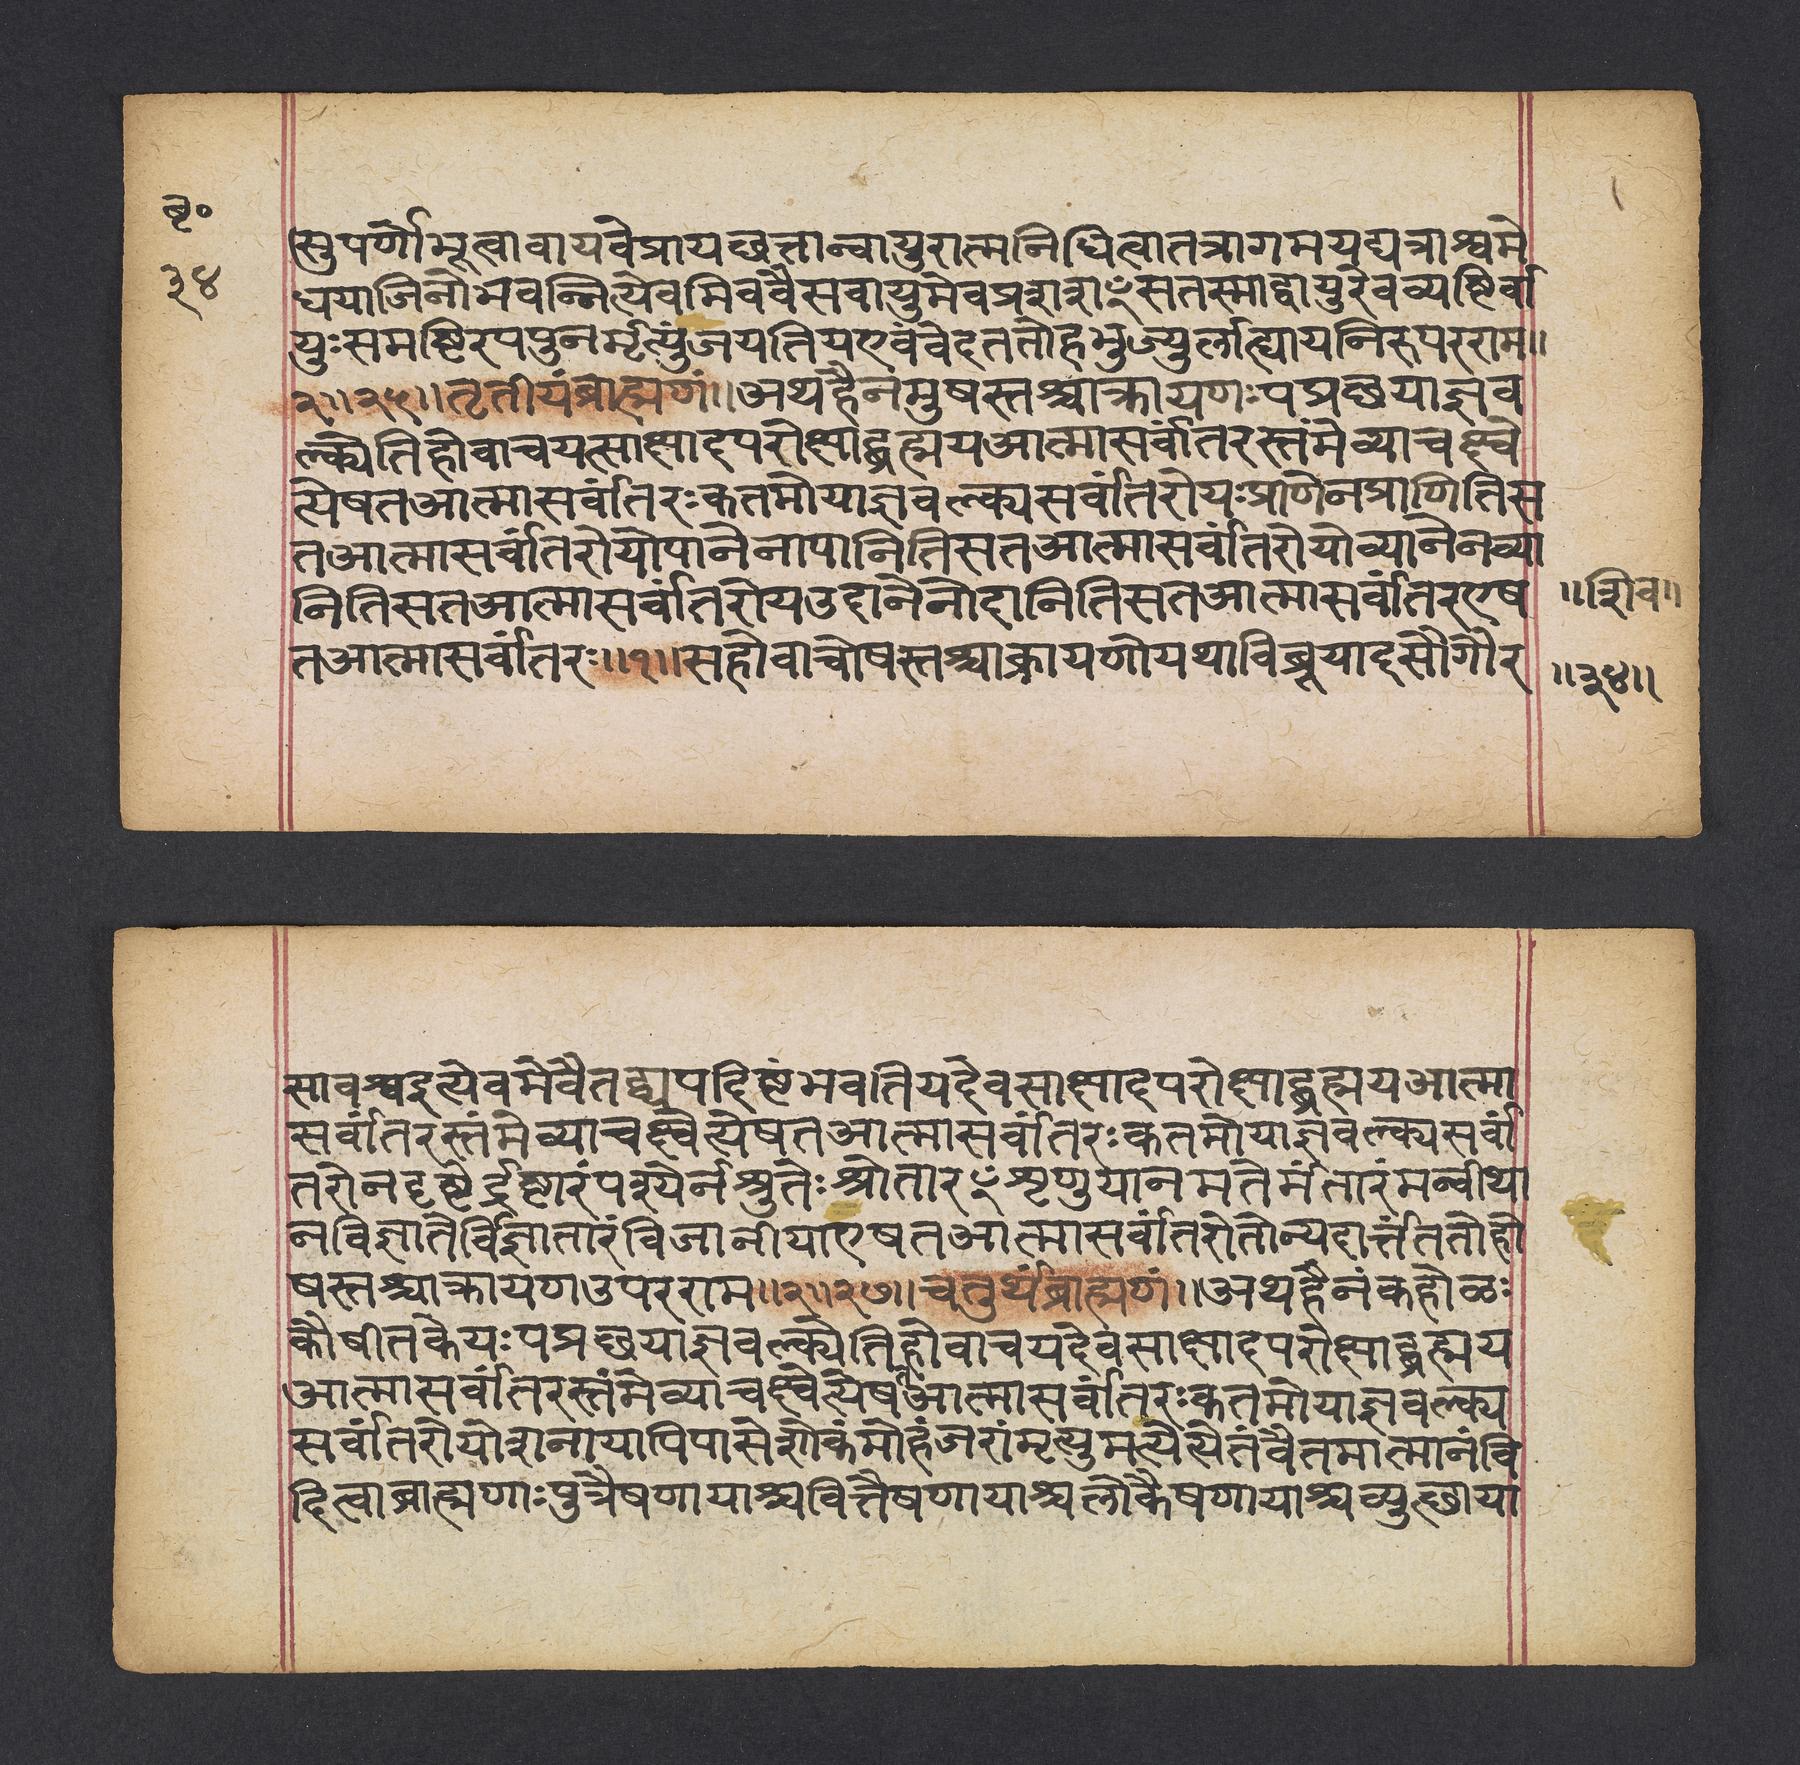 बृ०
३४
सुपर्णोभूत्वावायवेप्रायछत्तान्वायुरात्मनिधित्वातत्रागमयद्यत्राश्वमे
धयाजिनोभवन्नित्येवमिववैसवायुमेवप्रशशाꣳसतस्माद्वायुरेवव्यष्टिर्वा
युःसमष्टिरपपुनर्मृत्युंजयतियएवंवेदततोहभुज्युर्लाह्यायनिरुपरराम॥
२॥२५॥तृतीयंब्राह्मणं॥अथहैनमुषस्तश्चाक्रायणःपप्रछयाज्ञव
ल्क्येतिहोवाचयत्साक्षादपरोक्षाद्ब्रह्मयआत्मासर्वांतरस्तंमेव्याचक्ष्वे
त्येषतआत्मासर्वांतरःकतमोयाज्ञवल्क्यसर्वांतरोयःप्राणेनप्राणितिस
तआत्मासर्वांतरोयोपानेनापानितिसतआत्मासर्वांतरोयोव्यानेनव्या
नितिसतआत्मासर्वांतरोयउदानेनोदानितिसतआत्मासर्वांतरएष
तआत्मासर्वांतरः॥१॥सहोवाचोषस्तश्चाक्रायणोयथाविब्रूयादसौगौर
॥शिव॥
॥३४॥
सावश्वइत्येवमेवैतद्व्यपदिष्टंभवतियदेवसाक्षादपरोक्षाद्ब्रह्मयआत्मा
सर्वांतरस्तंमेव्याचक्ष्वेत्येषतआत्मासर्वांतरःकतमोयाज्ञवल्क्यसर्वां
तरोनदृष्टेर्द्रष्टारंपश्येर्नश्रुतेःश्रोतारꣳशृणुयानमतेर्मंतारंमन्वीथा
नविज्ञातेर्विज्ञातारंविजानीयाएषतआत्मासर्वांतरोतोन्यदार्त्तंततोहो
षस्तश्चाक्रायणउपरराम॥२॥२७॥चतुर्थंब्राह्मणं॥अथहैनंकहोळः
कौषीतकेयःपप्रछयाज्ञवल्क्येतिहोवाचयदेवसाक्षादपरोक्षाद्ब्रह्मय
आत्मासर्वांतरस्तंमेव्याचक्ष्वेत्येषतआत्मासर्वांतरःकतमोयाज्ञवल्क्य
सर्वांतरोयोशनायापिपासेशोकंमोहंजरांमृत्युमत्येत्येतंवैतमात्मानंवि
दित्वाब्राह्मणाःपुत्रैषणायाश्चवित्तैषणायाश्चलोकैषणायाश्चव्युत्थाया